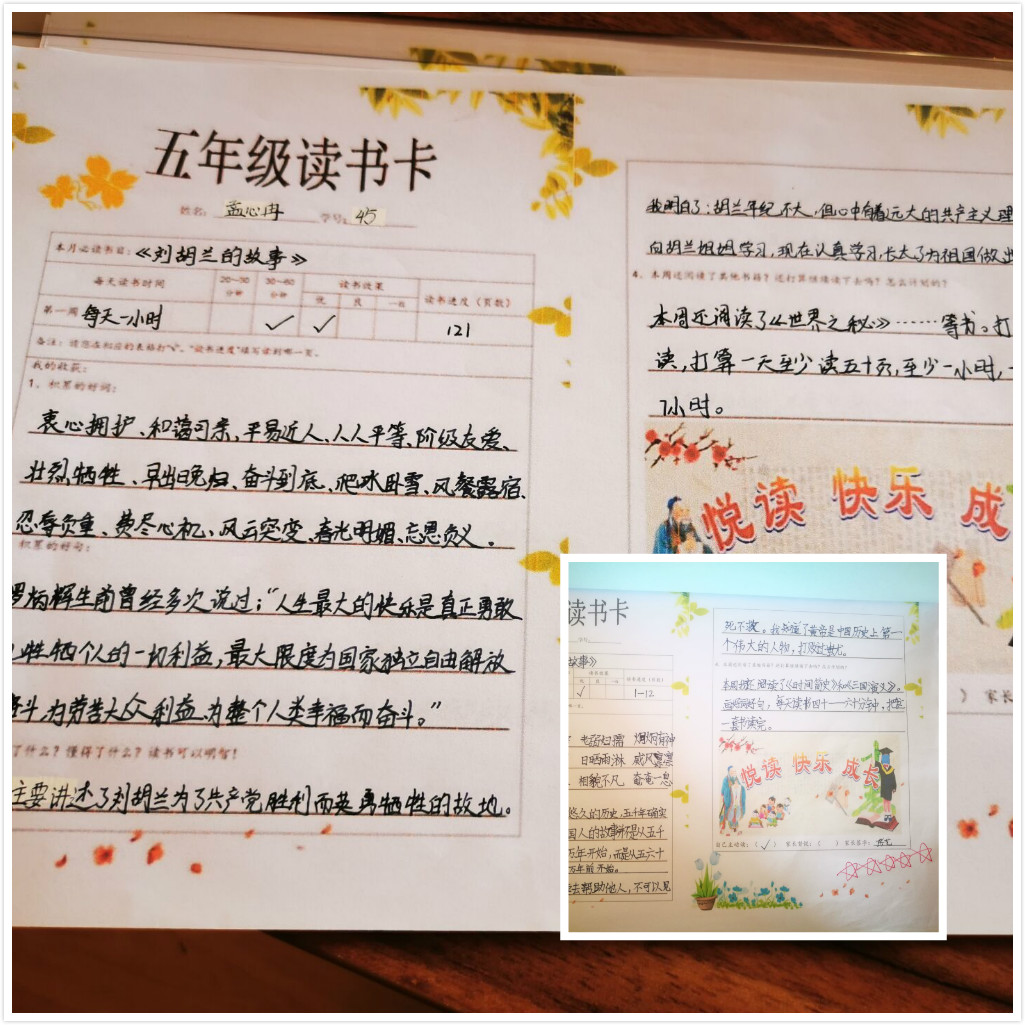 五年级读书卡
姓名: 孟心冉 学号: 45
本月必读书目:《刘胡兰的故事》
每天读书时间 20—30分钟 30—60分钟 读书效果 读书进度(页数)
优 良 一般
第一周 每天一小时 ✓ ✓ 121
备注:请您在相应的表格打“√”。“读书进度”填写读到哪一页。
我的收获:
1、积累的好词:
衷心拥护、和蔼可亲、平易近人、人人平等、阶级友爱、
壮烈牺牲、早出晚归、奋斗到底、爬冰卧雪、风餐露宿、
忍辱负重、费尽心机、风云突变、春光明媚、忘恩负义。
积累的好句:
罗炳辉生前曾经多次说过:“人生最大的快乐是真正勇敢
牲牺个人的一切利益,最大限度为国家独立自由解放
奋斗,为劳苦大众利益、为整个人类幸福而奋斗。”
了什么?懂得了什么?读书可以明智!
主要讲述了刘胡兰为了共产党胜利而英勇牺牲的故地。
我明白了:胡兰年纪不大,但心中有着远大的共产主义理
向胡兰姐姐学习,现在认真学习,长大了为祖国做出
4、本周还阅读了其他书籍?还打算继续读下去吗?怎么计划的?
本周还阅读了《世界之秘》……等书。打
读,打算一天至少读五十页,至少一小时,
7小时。
悦读 快乐 成
家长
读书卡
故事》
读书效果
优 良 一般
✓ 1—12
电 扫 炯炯有神
日晒雨淋 威风凛凛
相貌不凡 奄奄一息
悠久的历史,五千年确实
国人的故事并不是从五千
万年开始,而是从五六十
万年前开始。
去帮助他人,不可以见
死不救。我知道了黄帝是中国历史上第一
个伟大的人物,打败过蚩尤。
本周我还阅读了《时间简史》和《三国演义》。
每天读书四十一六十分钟,把
一套书读完。
悦读 快乐 成长
自己主动读:(✓) 家长督促:( ) 家长签字: